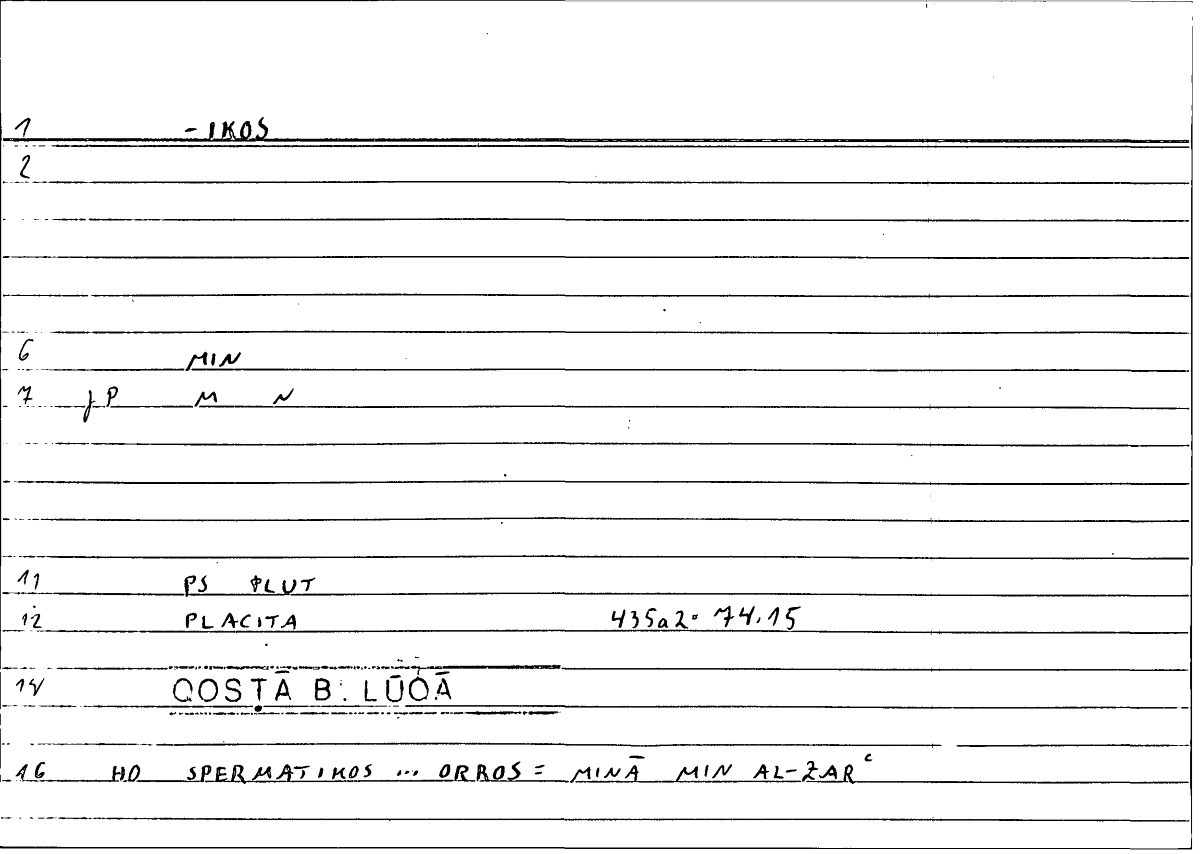 1 -IKOS
2
6 MIN
7 JP M N
11 PS PLUT
12 PLACITA 435a2 = 74.15
14 QOSṬĀ B. LŪQĀ
16 HO SPERMATIKOS ... ORROS = MINĀ MIN AL-ZARʿ